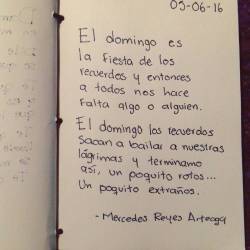 05-06-16
El domingo es
la fiesta de los
recuerdos y entonces
a todos nos hace
falta algo o alguien.
El domingo los recuerdos
sacan a bailar a nuestras
lágrimas y terminamo
así, un poquito rotos...
Un poquito extraños.
- Mercedes Reyes Arteaga